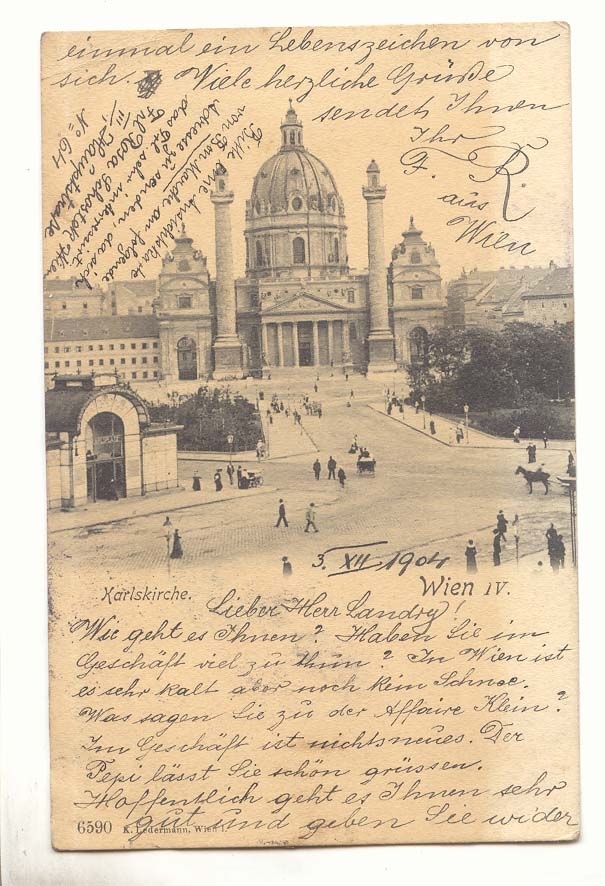 3. XII 1904
Karlskirche.
Wien IV.
Lieber Herr Landry!
Wie geht es Ihnen? Haben Sie im
Geschäft viel zu thun? In Wien ist
es sehr kalt aber noch kein Schnee.
Was sagen Sie zu der Affaire Klein?
Im Geschäft ist nichts neues. Der
Pepi lässt Sie schön grüssen.
Hoffentlich geht es Ihnen sehr
gut und geben Sie wider
6590 K. Ledermann, Wien I.
einmal ein Lebenszeichen von
sich. Viele herzliche Grüße
sendet Ihnen
Ihr
F. R.
aus
Wien
Bitte eine Ansichtskarte
von
an folgende
Adresse zu senden da sich
das Frl. sehr
Frl. Rosa
Hauptstrasse
No 64